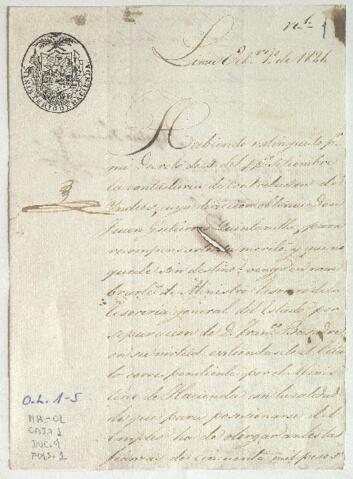 Lima Oct.re 1.o de 1821
MINISTERIO DE HACIENDA
Habiendo extinguido p.r
mi Decreto de del pp.o Setiembre
la contaduria de Contribucion de
Yndios, cuya direccion obtenia Don
Juan Quintanilla, para
recompensar su merito, y que no
quede sin destino; vengo en nom
brarle de Ministro tesorero de la
Tesoreria general del Estado por
separacion de D.
en su virtud extiendasele el titu
lo correspondiente por el Minis
terio de Hacienda en calidad
de que para posesionarse del
empleo ha de otorgar antes las
fianzas de cincuenta mil pesos
O.L. 1-5
MH-OL
CAJA 1
DOC. 9
FOLS. 2